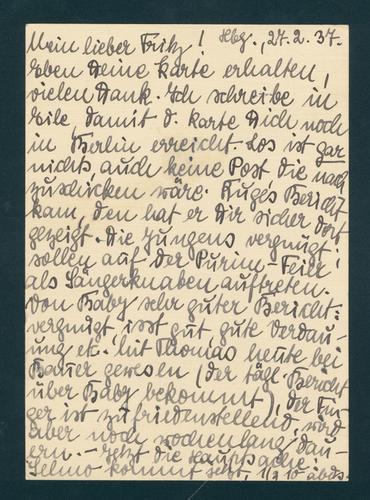 Mein lieber Fritz! Hbg., 27.2.37.
Eben Deine Karte erhalten,
vielen Dank. Ich schreibe in
Eile, damit d. Karte Dich noch
in Berlin erreicht. Los ist gar
nichts, auch keine Post, die nach
zuschicken wäre. Bericht
kam, den hat er Dir sicher dort
gezeigt. Die Jungens vergnügt!
sollen auf der Purim-Feier
als Sängerknaben auftreten.
Von Baby sehr guter Bericht:
vergnügt, isst gut, gute Verdau-
ung etc. Mit Thomas heute bei
Bauer gewesen (der tägl. Bericht
über Baby bekommt), der Fin-
ger ist zufriedenstellend, wird
aber noch wochenlang dau-
ern. – Jetzt die Hauptsache:
Selmo kommt 1/2 10 abds.